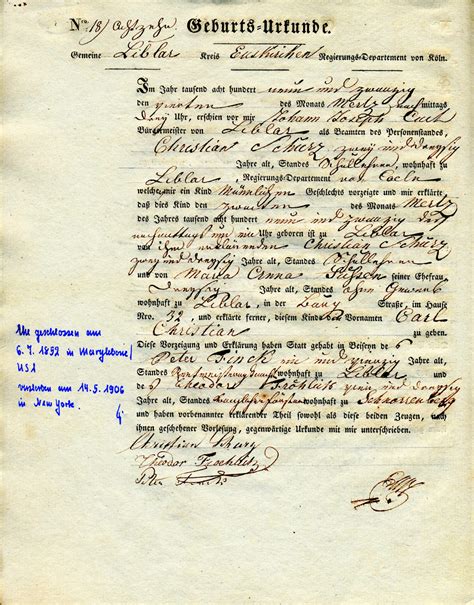 Nro 18) Achtzehn Geburts-Urkunde.
Gemeine Liblar Kreis Euskirchen Regierungs-Departement von Köln.
Im Jahr tausend acht hundert neun und zwanzig
den zweiten des Monats Mertz mittags
Uhr, erschien vor mir Johann Joseph
Bürgermeister von Liblar als Beamten des Personenstandes,
Christian Schurz zwey und dreyßig
Jahre alt, Standes Schullehrer, wohnhaft zu
Liblar, Regierungs-Departement von Coeln
welcher mir ein Kind Männlichen Geschlechts vorzeigte und mir erklärte,
daß dies Kind den zweiten des Monats Mertz
des Jahres tausend acht hundert neun und zwanzig des
vormittags um ein Uhr geboren ist zu Liblar
von ihm erklärenden Christian Schurz
zwey und dreyßig Jahre alt, Standes Schullehrer
und von Maria Anna Jüssen seiner Ehefrau
dreyßig Jahre alt, Standes ohne Gewerb
wohnhaft zu Liblar, in der Burg Straße, im Hause
Nro. 32, und erklärte ferner, diesem Kinde den Vornamen Carl
Christian zu geben.
Diese Vorzeigung und Erklärung haben Statt gehabt in Beiseyn des
Peter Zinck ein und zwanzig Jahre alt,
Standes wohnhaft zu Liblar und
des Theodor Froehlitz und dreyßig
Jahre alt, Standes wohnhaft zu Schnorrenberg
und haben vorbenannter erklärender Theil sowohl als diese beiden Zeugen, nach
ihnen geschehener Vorlesung, gegenwärtige Urkunde mit mir unterschrieben.
Christian Schurz
Theodor Froehlitz
Peter Zinck
Ehe geschlossen am
6. 7. 1852 in Marylebone/
USA
verstorben am 14.5.1906
in New York.